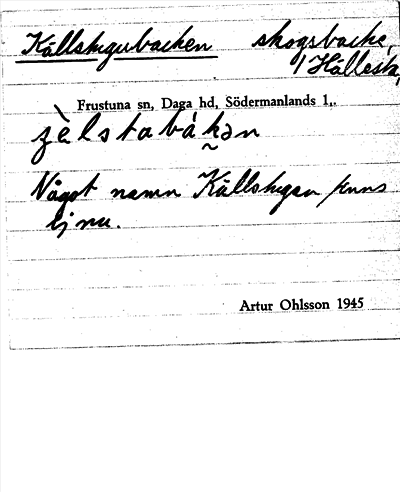 Källstugubacken skogsbacke,
/ Hållesta,
Frustuna sn, Daga hd, Södermanlands l.
Något namn Källstugan finns
ej nu.
Artur Ohlsson 1945